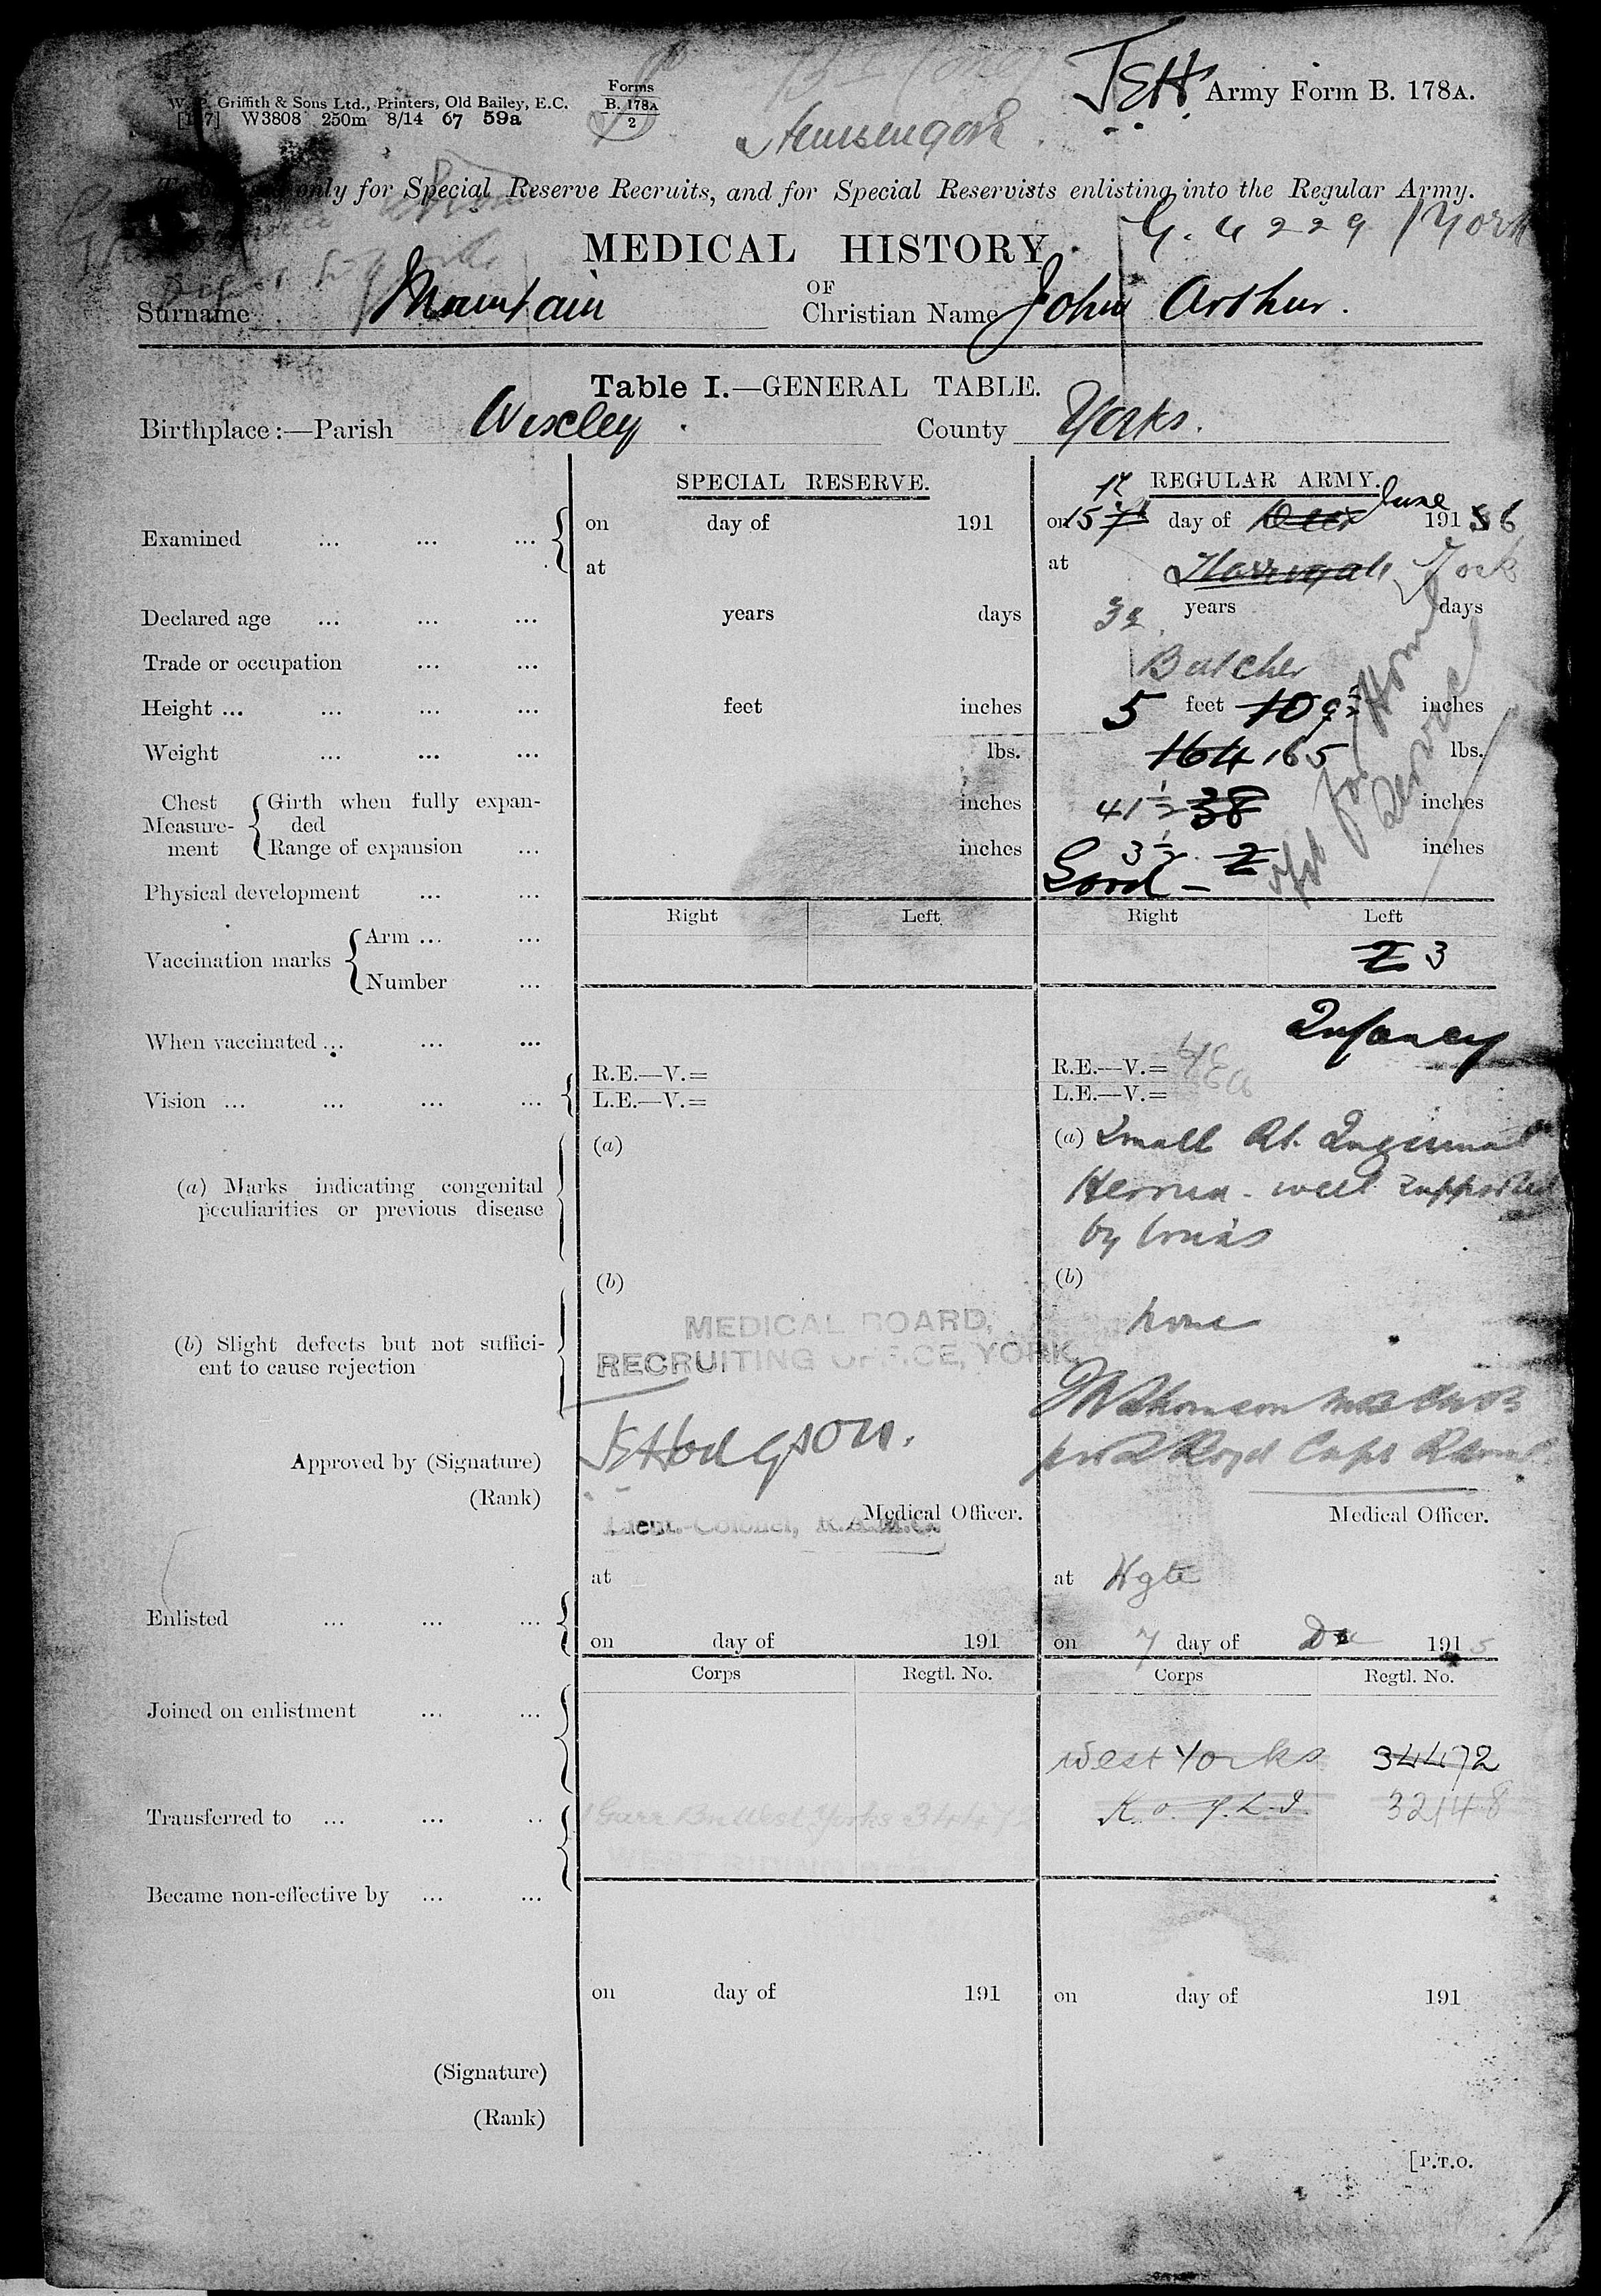 JEH Army Form B. 178A.
Griffith & Sons Ltd., Printers, Old Bailey, E.C.
W3808 250m 8/14 67 59a
Forms
B. 178A
2
only for Special Reserve Recruits, and for Special Reservists enlisting into the Regular Army.
G. 4229 / York
MEDICAL HISTORY
OF
Surname Mountain Christian Name John Arthur.
Table I.—GENERAL TABLE.
Birthplace:—Parish County Yorks.
SPECIAL RESERVE. REGULAR ARMY.
Examined ... ... ... on day of 191 on 15 7th day of Decr June 191 5 6
at at Harrogate York
Declared age ... ... ... years days years days
Trade or occupation ... ... Butcher
Height ... ... ... ... feet inches 5 feet 10 9½ inches
Weight ... ... ... lbs. 164 165 lbs.
Chest Measurement { Girth when fully expanded inches 41½ 38 inches
Range of expansion ... inches 3½ 2 inches
fit for Home Service
Physical development ... ... Good
Right Left Right Left
Vaccination marks { Arm ... ...
Number ... 2 3
When vaccinated ... ... ... Infancy
Vision ... ... ... ... R.E.—V.= R.E.—V.=
L.E.—V.= L.E.—V.=
(a) Marks indicating congenital peculiarities or previous disease (a) (a) Small Rt. Inguinal
Hernia - well supported
by truss
(b) Slight defects but not sufficient to cause rejection (b) (b)
none
MEDICAL BOARD,
RECRUITING OFFICE, YORK.
Approved by (Signature) JEHodgson.
(Rank) Lieut.-Colonel, R.A.M.C. Medical Officer. Medical Officer.
at at Hgte
Enlisted ... ... ... on day of 191 on 7 day of Dec 1915
Corps Regtl. No. Corps Regtl. No.
Joined on enlistment ... ... West Yorks 34472
K. O. Y. L. I. 32148
Transferred to ... ... .. 1 Garr Bn West Yorks
WEST RIDING REGT.
Became non-effective by ... ...
on day of 191 on day of 191
(Signature)
(Rank)
[P.T.O.